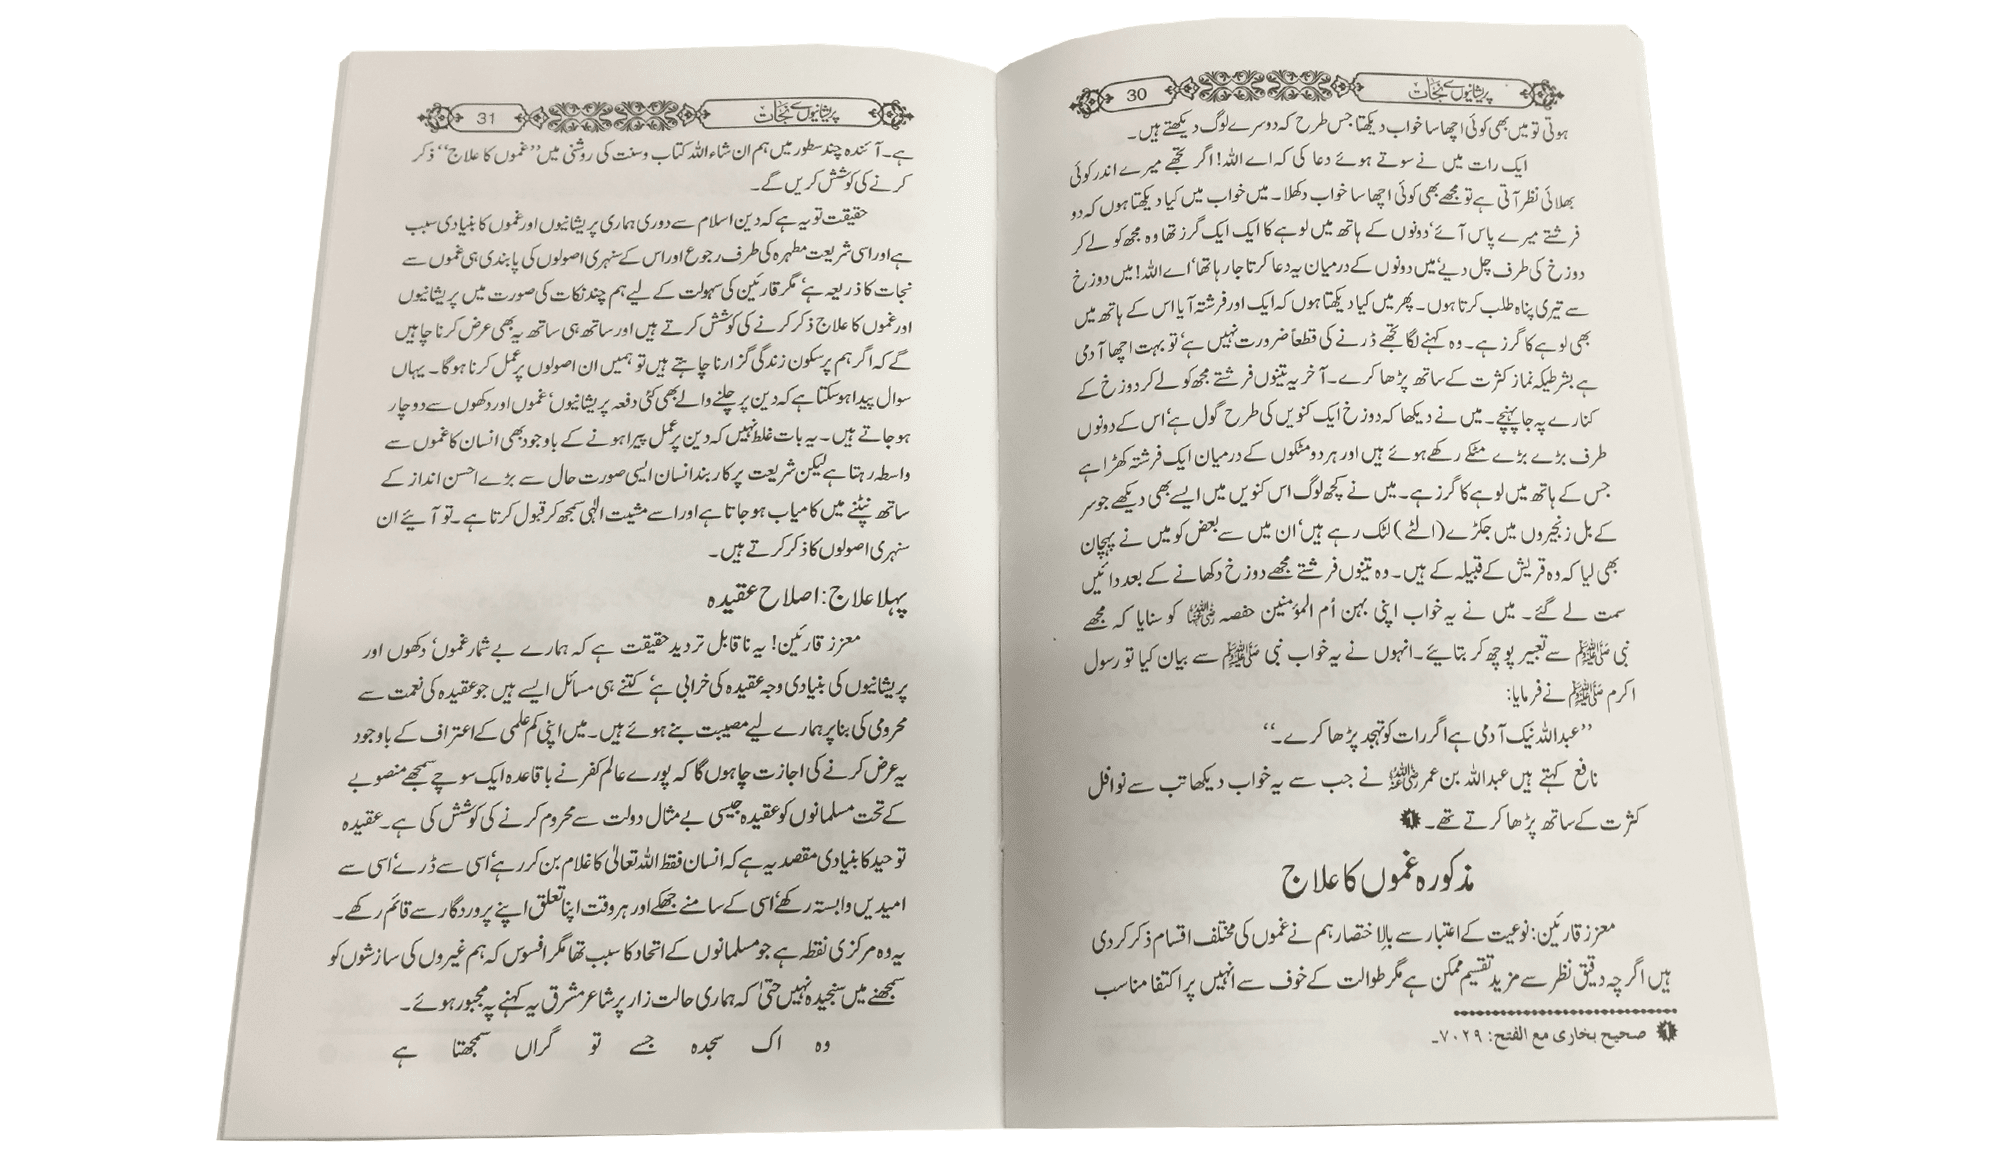 پریشانیوں سے نجات
30
ہوتی تو میں بھی کوئی اچھا سا خواب دیکھتا جس طرح کہ دوسرے لوگ دیکھتے ہیں۔
ایک رات میں نے سوتے ہوئے دعا کی کہ اے اللہ! اگر تجھے میرے اندر کوئی
بھلائی نظر آتی ہے تو مجھے بھی کوئی اچھا سا خواب دکھلا۔ میں خواب میں کیا دیکھتا ہوں کہ دو
فرشتے میرے پاس آئے‘ دونوں کے ہاتھ میں لوہے کا ایک ایک گرز تھا وہ مجھ کو لے کر
دوزخ کی طرف چل دیے‘ میں دونوں کے درمیان یہ دعا کرتا جا رہا تھا‘ اے اللہ! میں دوزخ
سے تیری پناہ طلب کرتا ہوں۔ پھر میں کیا دیکھتا ہوں کہ ایک اور فرشتہ آیا اس کے ہاتھ میں
بھی لوہے کا گرز ہے۔ وہ کہنے لگا تجھے ڈرنے کی قطعاً ضرورت نہیں ہے‘ تو بہت اچھا آدمی
ہے بشرطیکہ نماز کثرت کے ساتھ پڑھا کرے۔ آخر یہ تینوں فرشتے مجھ کو لے کر دوزخ کے
کنارے پہ جا پہنچے۔ میں نے دیکھا کہ دوزخ ایک کنویں کی طرح گول ہے‘ اس کے دونوں
طرف بڑے بڑے مٹکے رکھے ہوئے ہیں اور ہر دو مٹکوں کے درمیان ایک فرشتہ کھڑا ہے
جس کے ہاتھ میں لوہے کا گرز ہے۔ میں نے کچھ لوگ اس کنویں میں ایسے بھی دیکھے جو سر
کے بل زنجیروں میں جکڑے (الٹے) لٹک رہے ہیں‘ ان میں سے بعض کو میں نے پہچان
بھی لیا کہ وہ قریش کے قبیلہ کے ہیں۔ وہ تینوں فرشتے مجھے دوزخ دکھانے کے بعد دائیں
سمت لے گئے۔ میں نے یہ خواب اپنی بہن اُم المؤمنین حفصہ رضی اللہ عنہا کو سنایا کہ مجھے
نبی ﷺ سے تعبیر پوچھ کر بتائیے۔ انہوں نے یہ خواب نبی ﷺ سے بیان کیا تو رسول
اکرم ﷺ نے فرمایا:
’’عبداللہ نیک آدمی ہے اگر رات کو تہجد پڑھا کرے۔‘‘
نافع کہتے ہیں عبداللہ بن عمر رضی اللہ عنہ نے جب سے یہ خواب دیکھا تب سے نوافل
کثرت کے ساتھ پڑھا کرتے تھے۔ ❶
مذکورہ غموں کا علاج
معزز قارئین: نوعیت کے اعتبار سے بالاختصار ہم نے غموں کی مختلف اقسام ذکر کر دی
ہیں اگرچہ دقیق نظر سے مزید تقسیم ممکن ہے مگر طوالت کے خوف سے انہیں پر اکتفا مناسب
❶ صحیح بخاری مع الفتح: ۷۰۲۹۔
پریشانیوں سے نجات
31
ہے۔ آئندہ چند سطور میں ہم ان شاء اللہ کتاب و سنت کی روشنی میں ’’غموں کا علاج‘‘ ذکر
کرنے کی کوشش کریں گے۔
حقیقت تو یہ ہے کہ دین اسلام سے دوری ہماری پریشانیوں اور غموں کا بنیادی سبب
ہے اور اسی شریعت مطہرہ کی طرف رجوع اور اس کے سنہری اصولوں کی پابندی ہی غموں سے
نجات کا ذریعہ ہے‘ مگر قارئین کی سہولت کے لیے ہم چند نکات کی صورت میں پریشانیوں
اور غموں کا علاج ذکر کرنے کی کوشش کرتے ہیں اور ساتھ ہی ساتھ یہ بھی عرض کرنا چاہیں
گے کہ اگر ہم پرسکون زندگی گزارنا چاہتے ہیں تو ہمیں ان اصولوں پر عمل کرنا ہوگا۔ یہاں
سوال پیدا ہوسکتا ہے کہ دین پر چلنے والے بھی کئی دفعہ پریشانیوں‘ غموں اور دکھوں سے دوچار
ہو جاتے ہیں۔ یہ بات غلط نہیں کہ دین پر عمل پیرا ہونے کے باوجود بھی انسان کا غموں سے
واسطہ رہتا ہے لیکن شریعت پر کاربند انسان ایسی صورت حال سے بڑے احسن انداز کے
ساتھ نپٹنے میں کامیاب ہو جاتا ہے اور اسے مشیت الٰہی سمجھ کر قبول کرتا ہے۔ تو آئیے ان
سنہری اصولوں کا ذکر کرتے ہیں۔
پہلا علاج: اصلاح عقیدہ
معزز قارئین! یہ ناقابل تردید حقیقت ہے کہ ہمارے بے شمار غموں‘ دکھوں اور
پریشانیوں کی بنیادی وجہ عقیدہ کی خرابی ہے‘ کتنے ہی مسائل ایسے ہیں جو عقیدہ کی نعمت سے
محرومی کی بنا پر ہمارے لیے مصیبت بنے ہوئے ہیں۔ میں اپنی کم علمی کے اعتراف کے باوجود
یہ عرض کرنے کی اجازت چاہوں گا کہ پورے عالم کفر نے باقاعدہ ایک سوچے سمجھے منصوبے
کے تحت مسلمانوں کو عقیدہ جیسی بے مثال دولت سے محروم کرنے کی کوشش کی ہے۔ عقیدہ
توحید کا بنیادی مقصد یہ ہے کہ انسان فقط اللہ تعالیٰ کا غلام بن کر رہے‘ اسی سے ڈرے‘ اسی سے
امیدیں وابستہ رکھے‘ اسی کے سامنے جھکے اور ہر وقت اپنا تعلق اپنے پروردگار سے قائم رکھے۔
یہ وہ مرکزی نقطہ ہے جو مسلمانوں کے اتحاد کا سبب تھا مگر افسوس کہ ہم غیروں کی سازشوں کو
سمجھنے میں سنجیدہ نہیں حتیٰ کہ ہماری حالت زار پر شاعر مشرق یہ کہنے پہ مجبور ہوئے۔
وہ اک سجدہ جسے تو گراں سمجھتا ہے